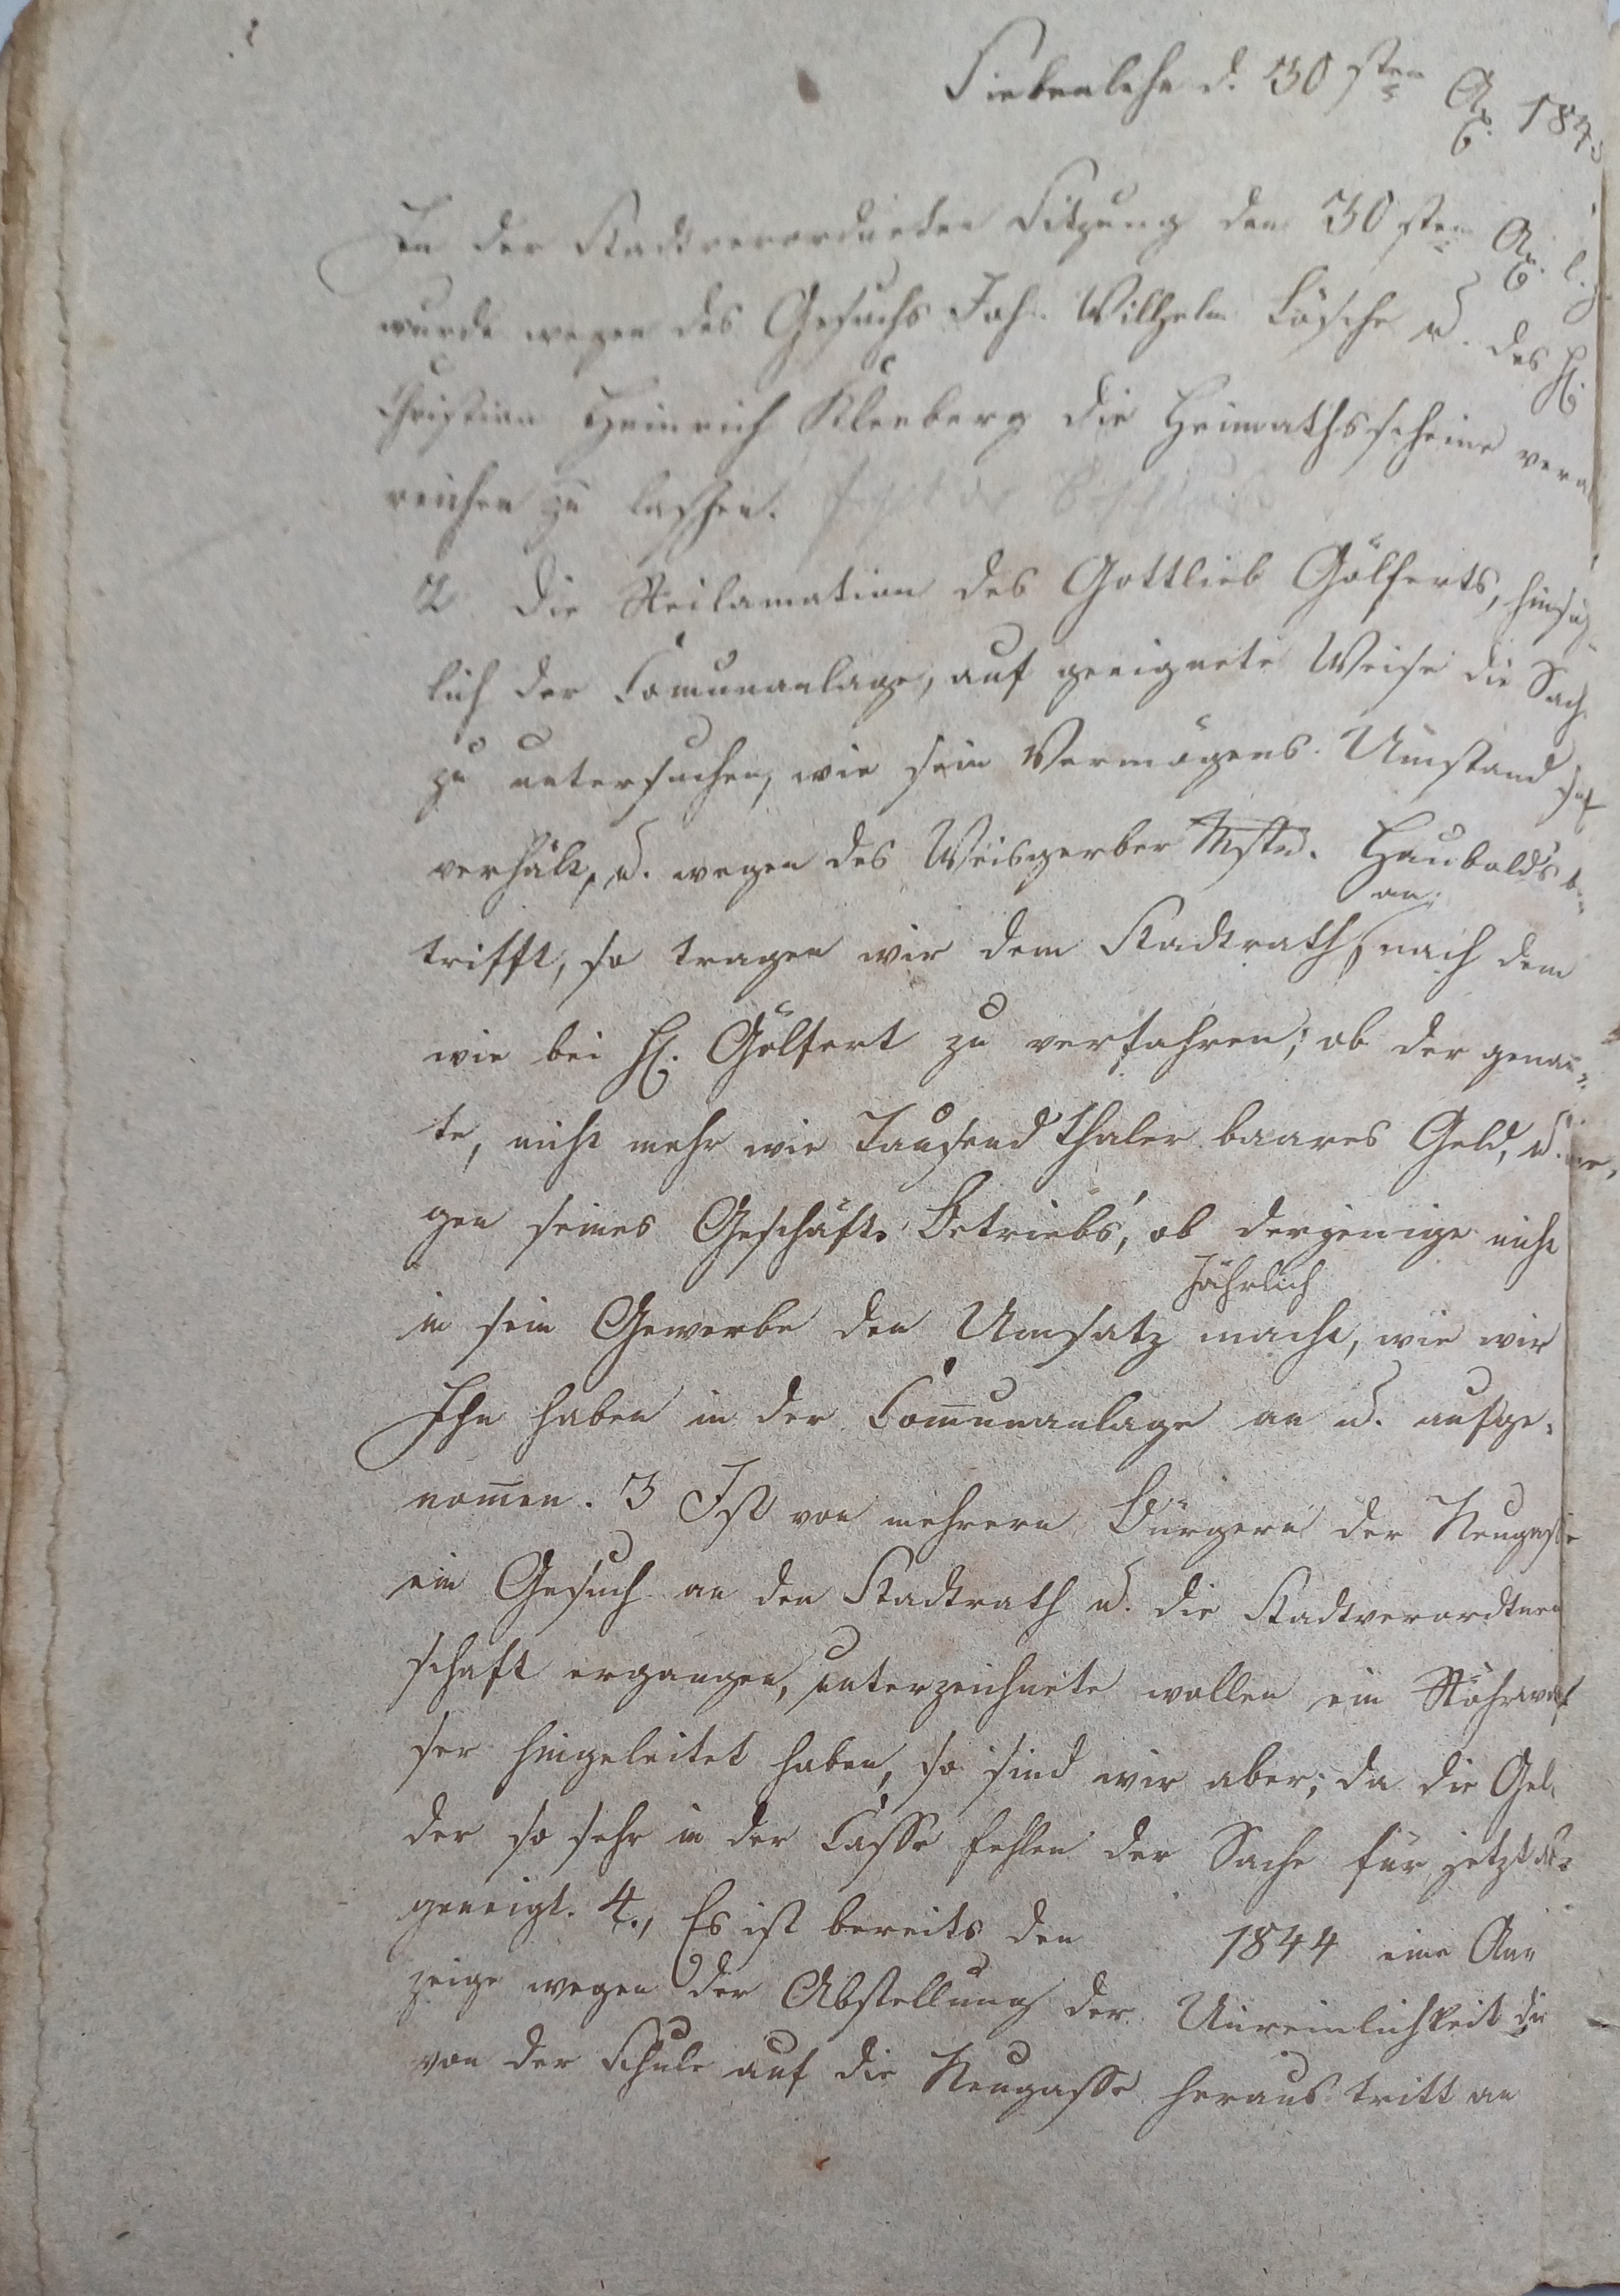 Siebenlehn d. 30sten Ap. 184
In der Stadtverordneten Sitzung den 30sten Ap. l. J.
wurde wegen des Gesuchs Joh. Wilhelm Lösche u. des H.
Christian Heinrich Kleeberg die Heimathsscheine verab
reichen zu lassen.
2 Die Reclamation des Gottlieb Gölferts, hinsicht
lich der Comunanlage, auf geeignete Weise die Sach
zu untersuchen, wie sein Vermögens Umstand sich
verhält, u. wegen des Weisgerber Mstr. Haubolds be
trifft, so tragen wir dem Stadtrath an, nach dem
wie bei H. Gölfert zu verfahren; ob der genan̄=
te, nicht mehr wie Tausend Thaler baares Geld, u. we,
gen seines Geschäfts Betriebs, ob derjenige nicht
in sein Gewerbe den Umsatz Jährlich macht, wie wir
Ihn haben in der Com̄unanlage an u. aufge=
nom̄en. 3 Ist von mehrern Bürgern der Neugasse
ein Gesuch an den Stadtrath u. die Stadtverordtnen
schaft ergangen, unterzeichnete wollen ein Röhrwas
ser hingeleitet haben, so sind wir aber, da die Gel
der so sehr in der Casse fehlen der Sache für jetzt
geneigt. 4., Es ist bereits den 1844 eine An=
zeige wegen der Abstellung der Unreinlichkeit die
von der Schule auf die Neugasse heraus tritt an